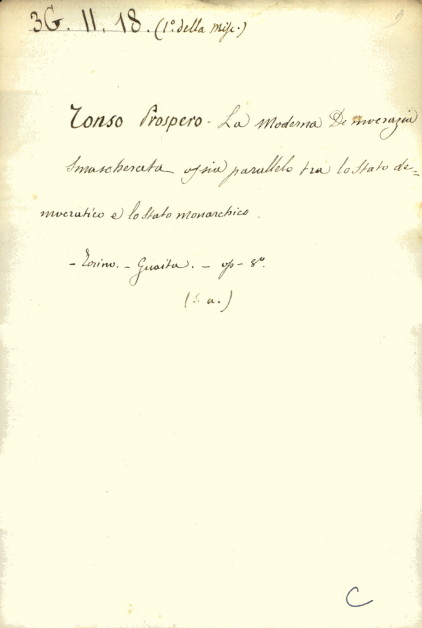 3G. II. 18. (1º. della Misc.)
Tonso Prospero - La Moderna Democrazia
Smascherata ossia parallelo tra lo Stato de=
mocratico e lo Stato monarchico.
- Torino. - Guaita. - op - 8º.
(s. a.)
C